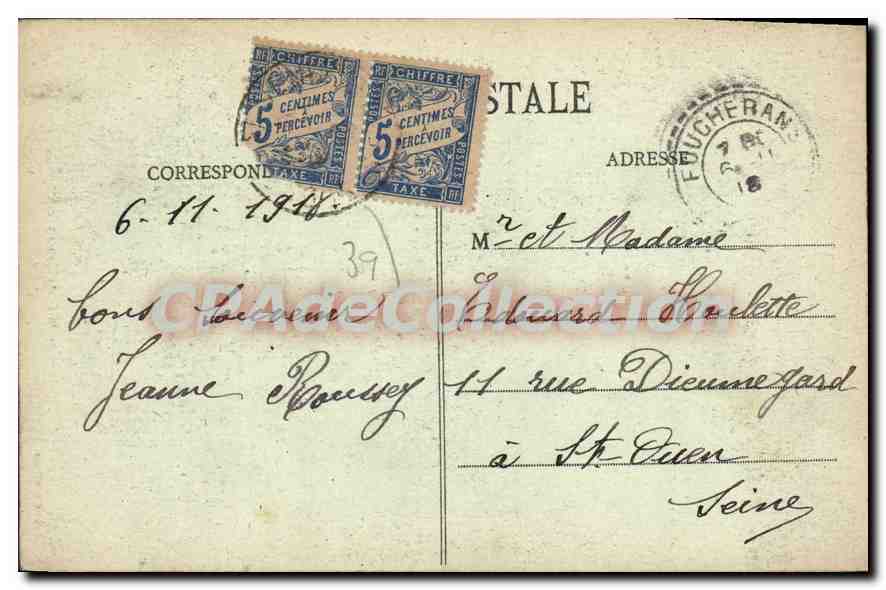 STALE
CORRESPOND
ADRESSE
RF CHIFFRE
5 CENTIMES
À
PERCEVOIR
POSTES
TAXE RF
RF CHIFFRE
5 CENTIMES
À
PERCEVOIR
POSTES
TAXE RF
FOUCHERANS
18
6-11-1918.
39
bons souvenirs
Jeanne Roussey
Mr et Madame
Edouard Houlette
11 rue Dieumegard
à St Ouen
Seine
CPAdeCollection